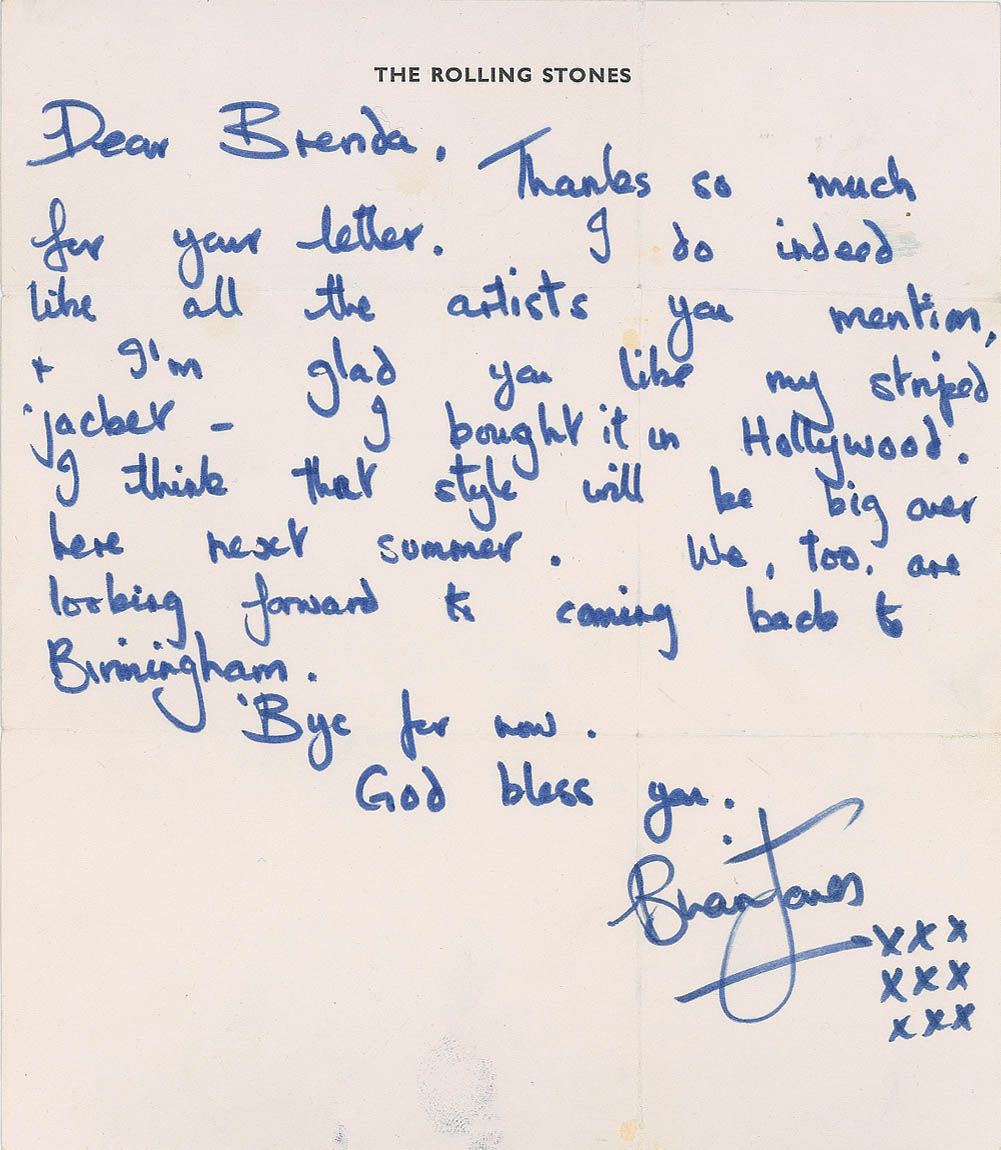 THE ROLLING STONES
Dear Brenda.
Thanks so much
for your letter. I do indeed
like all the artists you mention,
+ I'm glad you like my striped
'jacket - I bought it in Hollywood.
I think that style will be big over
here next summer. We, too, are
looking forward to coming back to
Birmingham.
'Bye for now.
God bless you.
Brian Jones
xxx
xxx
xxx